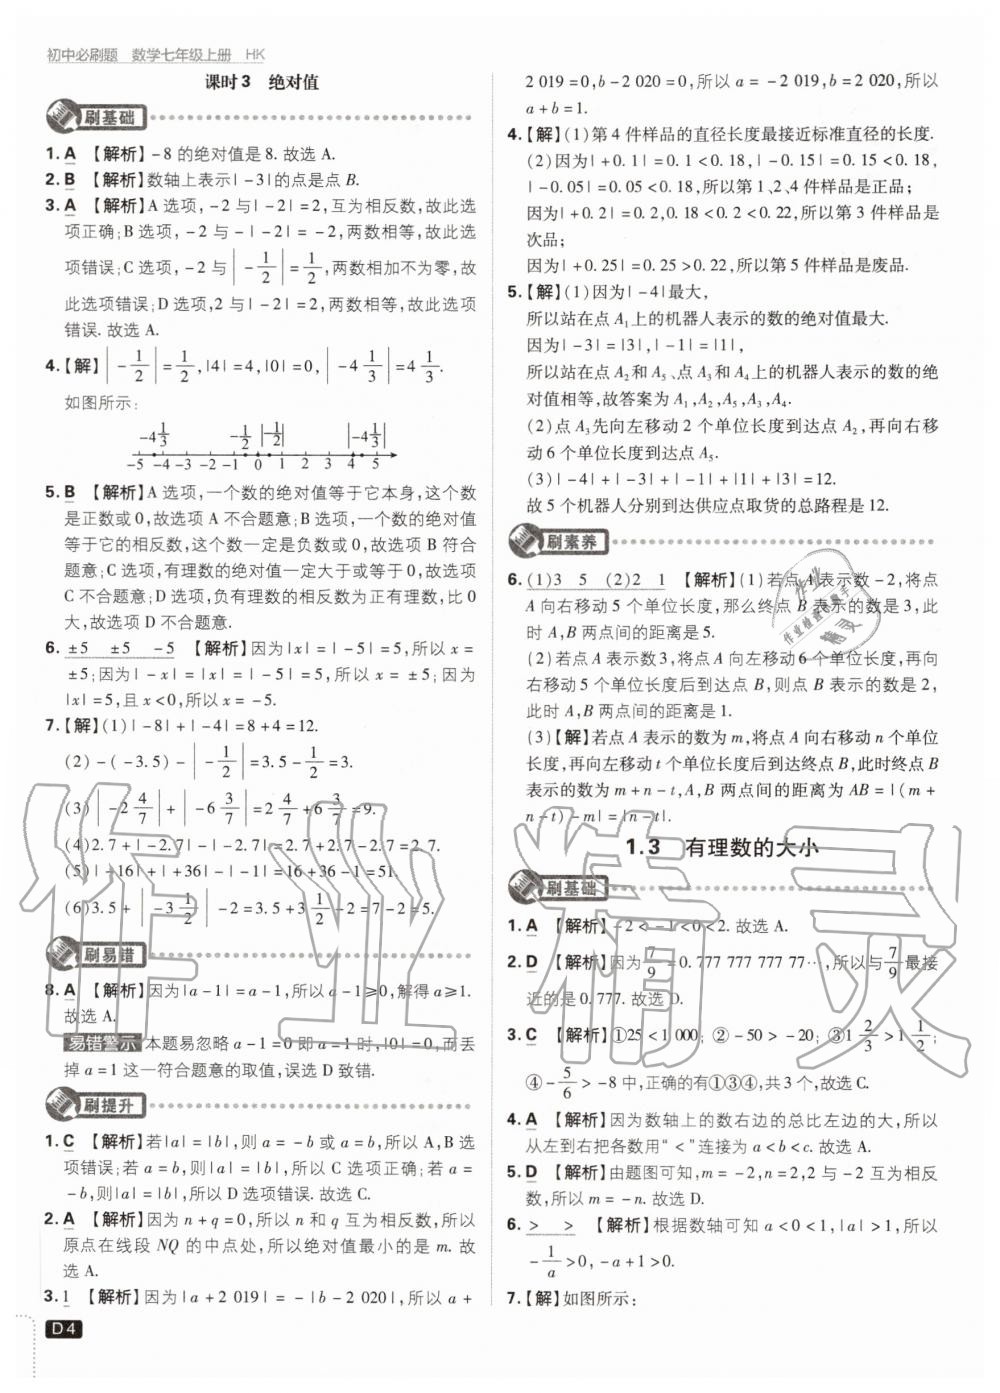 初中必刷题 数学七年级上册 HK
课时3 绝对值
刷基础
1. A 【解析】-8的绝对值是8. 故选 A.
2. B 【解析】数轴上表示|-3|的点是点 B.
3. A 【解析】A 选项,-2与|-2|=2,互为相反数,故此选
项正确;B 选项,-2与-|-2|=-2,两数相等,故此选
项错误;C 选项,-2与|-1/2|=1/2,两数相加不为零,故
此选项错误;D 选项,2与|-2|=2,两数相等,故此选项
错误. 故选 A.
4.【解】|-1/2|=1/2,|4|=4,|0|=0,|-4 1/3|=4 1/3.
如图所示:
-4 1/3 -1/2 |-1/2| |-4 1/3|
-5 -4 -3 -2 -1 0 1 2 3 4 5
5. B 【解析】A 选项,一个数的绝对值等于它本身,这个数
是正数或0,故选项 A 不合题意;B 选项,一个数的绝对值
等于它的相反数,这个数一定是负数或0,故选项 B 符合
题意;C 选项,有理数的绝对值一定大于或等于0,故选项
C 不合题意;D 选项,负有理数的相反数为正有理数,比0
大,故选项 D 不合题意.
6. ±5 ±5 -5 【解析】因为|x|=|-5|=5,所以 x=
±5;因为|-x|=|x|=|-5|=5,所以 x=±5;因为
|x|=5,且 x<0,所以 x=-5.
7.【解】(1)|-8|+|-4|=8+4=12.
(2)-(-3.5)-|-1/2|=3.5-1/2=3.
(3)|-2 4/7|+|-6 3/7|=2 4/7+6 3/7=9.
(4)2.7+|-2.7|-|-2.7|=2.7+2.7-2.7=2.7.
(5)|-16|+|+36|-|-1|=16+36-1=51.
(6)3.5+|-3 1/2|-2=3.5+3 1/2-2=7-2=5.
刷易错
8. A 【解析】因为|a-1|=a-1,所以 a-1≥0,解得 a≥1.
故选 A.
易错警示 本题易忽略 a-1=0 即 a=1 时,|0|=0,而丢
掉 a=1 这一符合题意的取值,误选 D 致错.
刷提升
1. C 【解析】若|a|=|b|,则 a=-b 或 a=b,所以 A,B 选
项错误;若 a=b,则|a|=|b|,所以 C 选项正确;若 a=
-b,则|a|=|b|,所以 D 选项错误. 故选 C.
2. A 【解析】因为 n+q=0,所以 n 和 q 互为相反数,所以
原点在线段 NQ 的中点处,所以绝对值最小的是 m. 故
选 A.
3. 1 【解析】因为|a+2 019|=-|b-2 020|,所以 a+
D4
2 019=0,b-2 020=0,所以 a=-2 019,b=2 020,所以
a+b=1.
4.【解】(1)第4件样品的直径长度最接近标准直径的长度.
(2)因为|+0.1|=0.1<0.18,|-0.15|=0.15<0.18,
|-0.05|=0.05<0.18,所以第1、2、4件样品是正品;
因为|+0.2|=0.2,0.18<0.2<0.22,所以第3件样品是
次品;
因为|+0.25|=0.25>0.22,所以第5件样品是废品.
5.【解】(1)因为|-4|最大,
所以站在点 A₁上的机器人表示的数的绝对值最大.
因为|-3|=|3|,|-1|=|1|,
所以站在点 A₂和 A₅、点 A₃和 A₄上的机器人表示的数的绝
对值相等,故答案为 A₁,A₂,A₅,A₃,A₄.
(2)点 A₃先向左移动2个单位长度到达点 A₂,再向右移
动6个单位长度到达点 A₅.
(3)|-4|+|-3|+|-1|+|1|+|3|=12.
故5个机器人分别到达供应点取货的总路程是12.
刷素养
6. (1)3 5 (2)2 1 【解析】(1)若点 A 表示数-2,将点
A 向右移动5个单位长度,那么终点 B 表示的数是3,此
时 A,B 两点间的距离是5.
(2)若点 A 表示数3,将点 A 向左移动6个单位长度,再向
右移动5个单位长度后到达点 B,则点 B 表示的数是2,
此时 A,B 两点间的距离是1.
(3)【解】若点 A 表示的数为 m,将点 A 向右移动 n 个单位
长度,再向左移动 t 个单位长度到达终点 B,此时终点 B
表示的数为 m+n-t,A,B 两点间的距离为 AB=|(m+
n-t)-m|=|n-t|.
1.3 有理数的大小
刷基础
1. A 【解析】-2<-1<0<2. 故选 A.
2. D 【解析】因为7/9=0.777 777 777 77…,所以与7/9最接
近的是0.777. 故选 D.
3. C 【解析】①25<1 000;②-50>-20;③1 2/3>1 1/2;
④-5/6>-8中,正确的有①③④,共3个,故选 C.
4. A 【解析】因为数轴上的数右边的总比左边的大,所以
从左到右把各数用“<”连接为 a<b<c. 故选 A.
5. D 【解析】由题图可知,m=-2,n=2,2与-2互为相反
数,所以 m=-n. 故选 D.
6. > > 【解析】根据数轴可知 a<0<1,|a|>1,所以
-1/a>0,-a+1>0.
7.【解】如图所示:
作业精灵